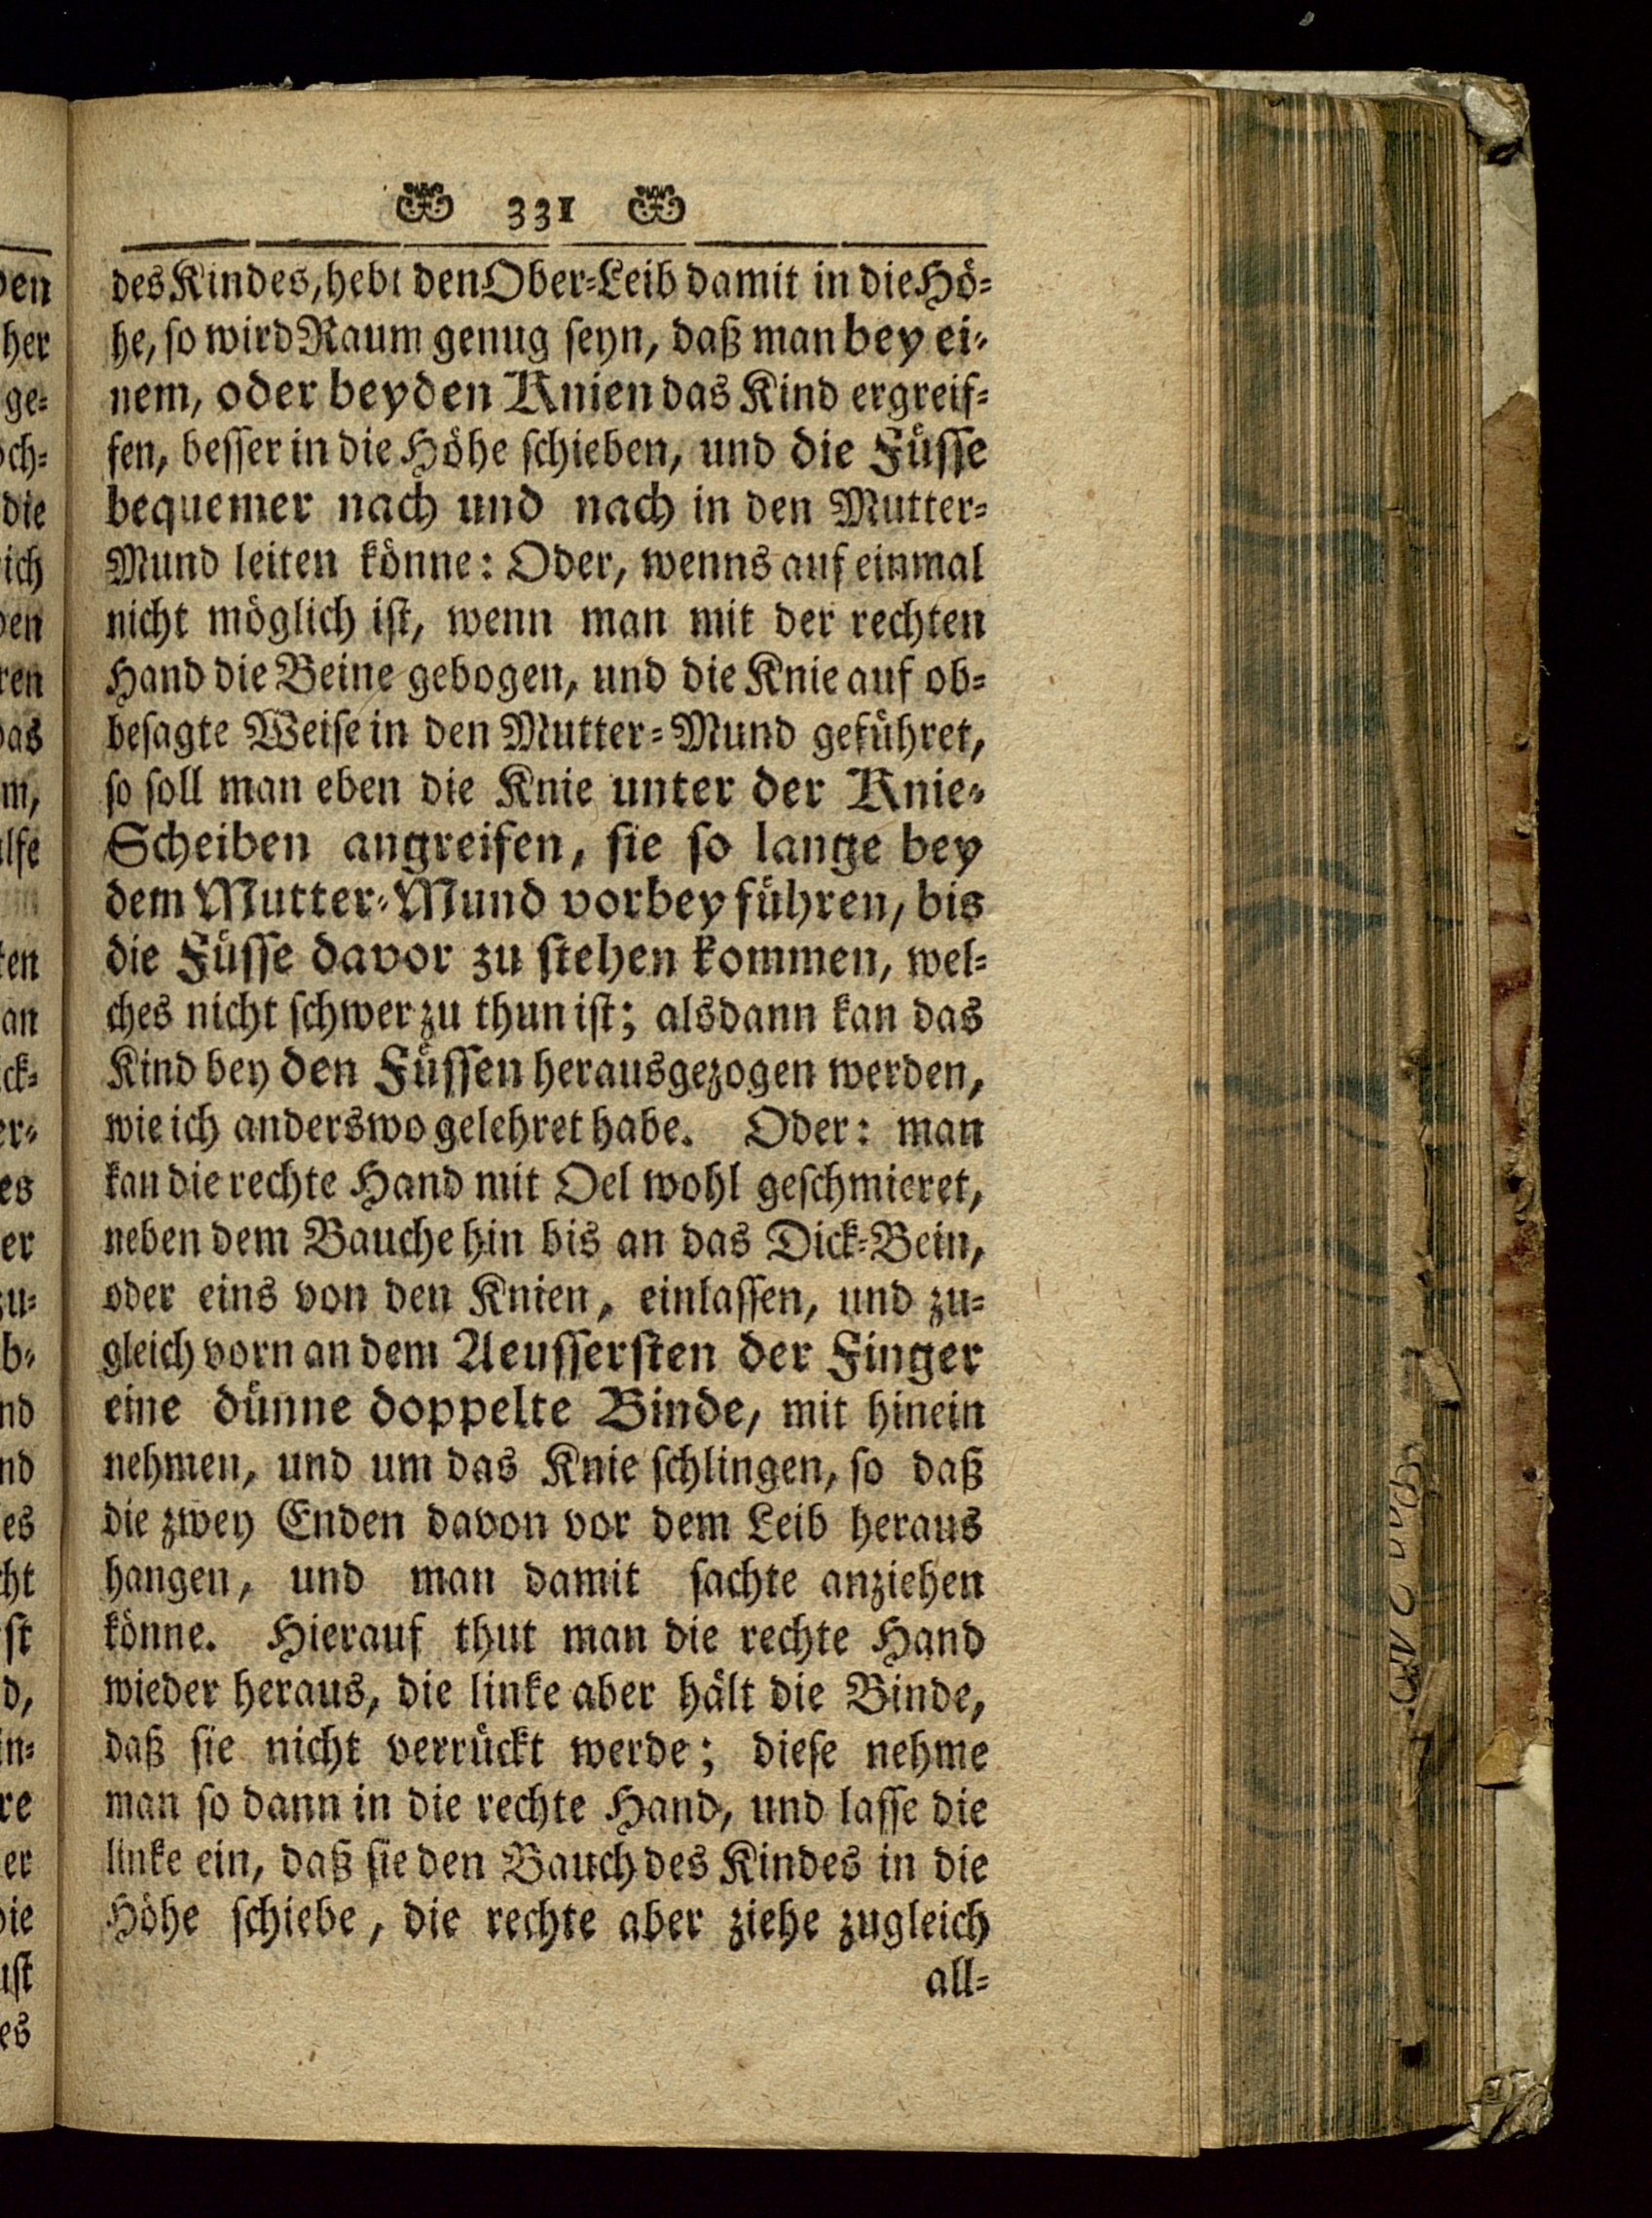 331
des Kindes, hebt den Ober=Leib damit in die Hö=
he, so wird Raum genug seyn, daß man bey ei=
nem, oder beyden Knien das Kind ergreif=
fen, besser in die Höhe schieben, und die Füsse
bequemer nach und nach in den Mutter=
Mund leiten könne: Oder, wenns auf einmal
nicht möglich ist, wenn man mit der rechten
Hand die Beine gebogen, und die Knie auf ob=
besagte Weise in den Mutter=Mund geführet,
so soll man eben die Knie unter der Knie=
Scheiben angreifen, sie so lange bey
dem Mutter=Mund vorbey führen, bis
die Füsse davor zu stehen kommen, wel=
ches nicht schwer zu thun ist; alsdann kan das
Kind bey den Füssen herausgezogen werden,
wie ich anderswo gelehret habe. Oder: man
kan die rechte Hand mit Oel wohl geschmieret,
neben dem Bauche hin bis an das Dick=Bein,
oder eins von den Knien, einlassen, und zu=
gleich vorn an dem Aeussersten der Finger
eine dünne doppelte Binde, mit hinein
nehmen, und um das Knie schlingen, so daß
die zwey Enden davon vor dem Leib heraus
hangen, und man damit sachte anziehen
könne. Hierauf thut man die rechte Hand
wieder heraus, die linke aber hält die Binde,
daß sie nicht verrückt werde; diese nehme
man so dann in die rechte Hand, und lasse die
linke ein, daß sie den Bauch des Kindes in die
Höhe schiebe, die rechte aber ziehe zugleich
all=